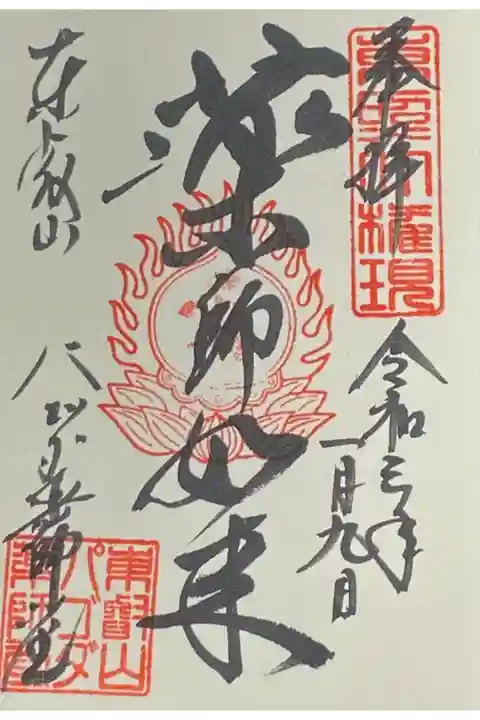 奉拝
東照大権現
令和三年
一月九日
薬師如来
東叡山
パゴダ薬師堂
東叡山
パゴダ
薬師堂